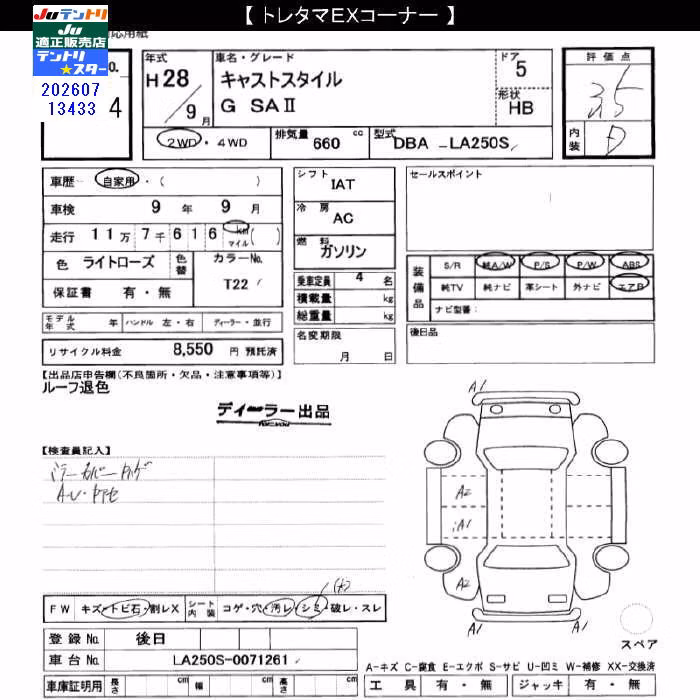 【 トレタマEXコーナー 】
Juテントリ
Ju
適正販売店
テントリ
★スター
応用紙
No.
202607
13433
4
年式
H 28 / 9 月
車名・グレード
キャストスタイル
G SAⅡ
ドア
5
形状
HB
2WD・4WD
排気量 660 cc
型式 DBA - LA250S
評価点
3.5
内装
D
車歴 自家用・( )
車検 9 年 9 月
走行 11万7千616 km マイル ( )
色 ライトローズ
色替
カラーNo.
T22
保証書 有・無
シフト IAT
冷房 AC
燃料 ガソリン
乗車定員 4 名
積載量 kg
総重量 kg
名変期限
月 日
セールスポイント
装備品
S/R 純A/W P/S P/W ABS
純TV 純ナビ 革シート 外ナビ エアB
ナビ型番:
後日品
モデル年式 年 ハンドル 左・右 ディーラー・並行
リサイクル料金 8,550 円 預託済
【出品店申告欄(不良箇所・欠品・注意事項等)】
ルーフ退色
ディーラー出品
【検査員記入】
ミラーカバー
A・U・
A1
A2
A1
A2
A1
A1
FW キズ・トビ石・割レX
シート内装 コゲ・穴・汚レ・シミ・破レ・スレ
登録No. 後日
車台No. LA250S-0071261
車庫証明用 長さ cm 幅 cm 高さ cm
スペア
A-キズ C-腐食 E-エクボ S-サビ U-凹ミ W-補修 XX-交換済
工具 有・無 ジャッキ 有・無